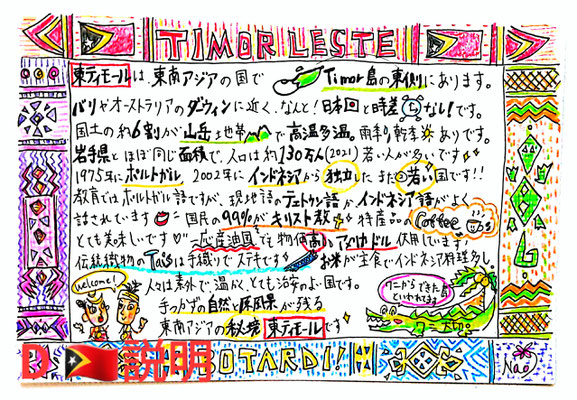 TIMOR LESTE
東ティモールは、東南アジアの国で Timor島の東側にあります。
バリやオーストラリアのダウィンに近く、なんと!日本と時差なし!です。
国土の約6割が山岳地帯で高温多湿。雨季、乾季ありです。
岩手県とほぼ同じ面積で、人口は約130万人(2021)若い人が多いです
1975年にポルトガル、2002年にインドネシアから独立したまだ若い国です!!
教育ではポルトガル語ですが、現地語のテトゥン語かインドネシア語がよく
話されています 国民の99%がキリスト教 特産品のCoffee
とても美味しいです♡ 産油国でも物価高、アメリカドル使用しています!
伝統織物のTaisは手織りでステキです お米が主食でインドネシア料理多し
welcome!
人々は素朴で、温かく、とても治安のよい国です。
手つかずの自然や原風景が残る
東南アジアの秘境 東ティモールです
ワニからできた島といわれてます
ワニ大切。
D 説明
BOTARDI!
Nao